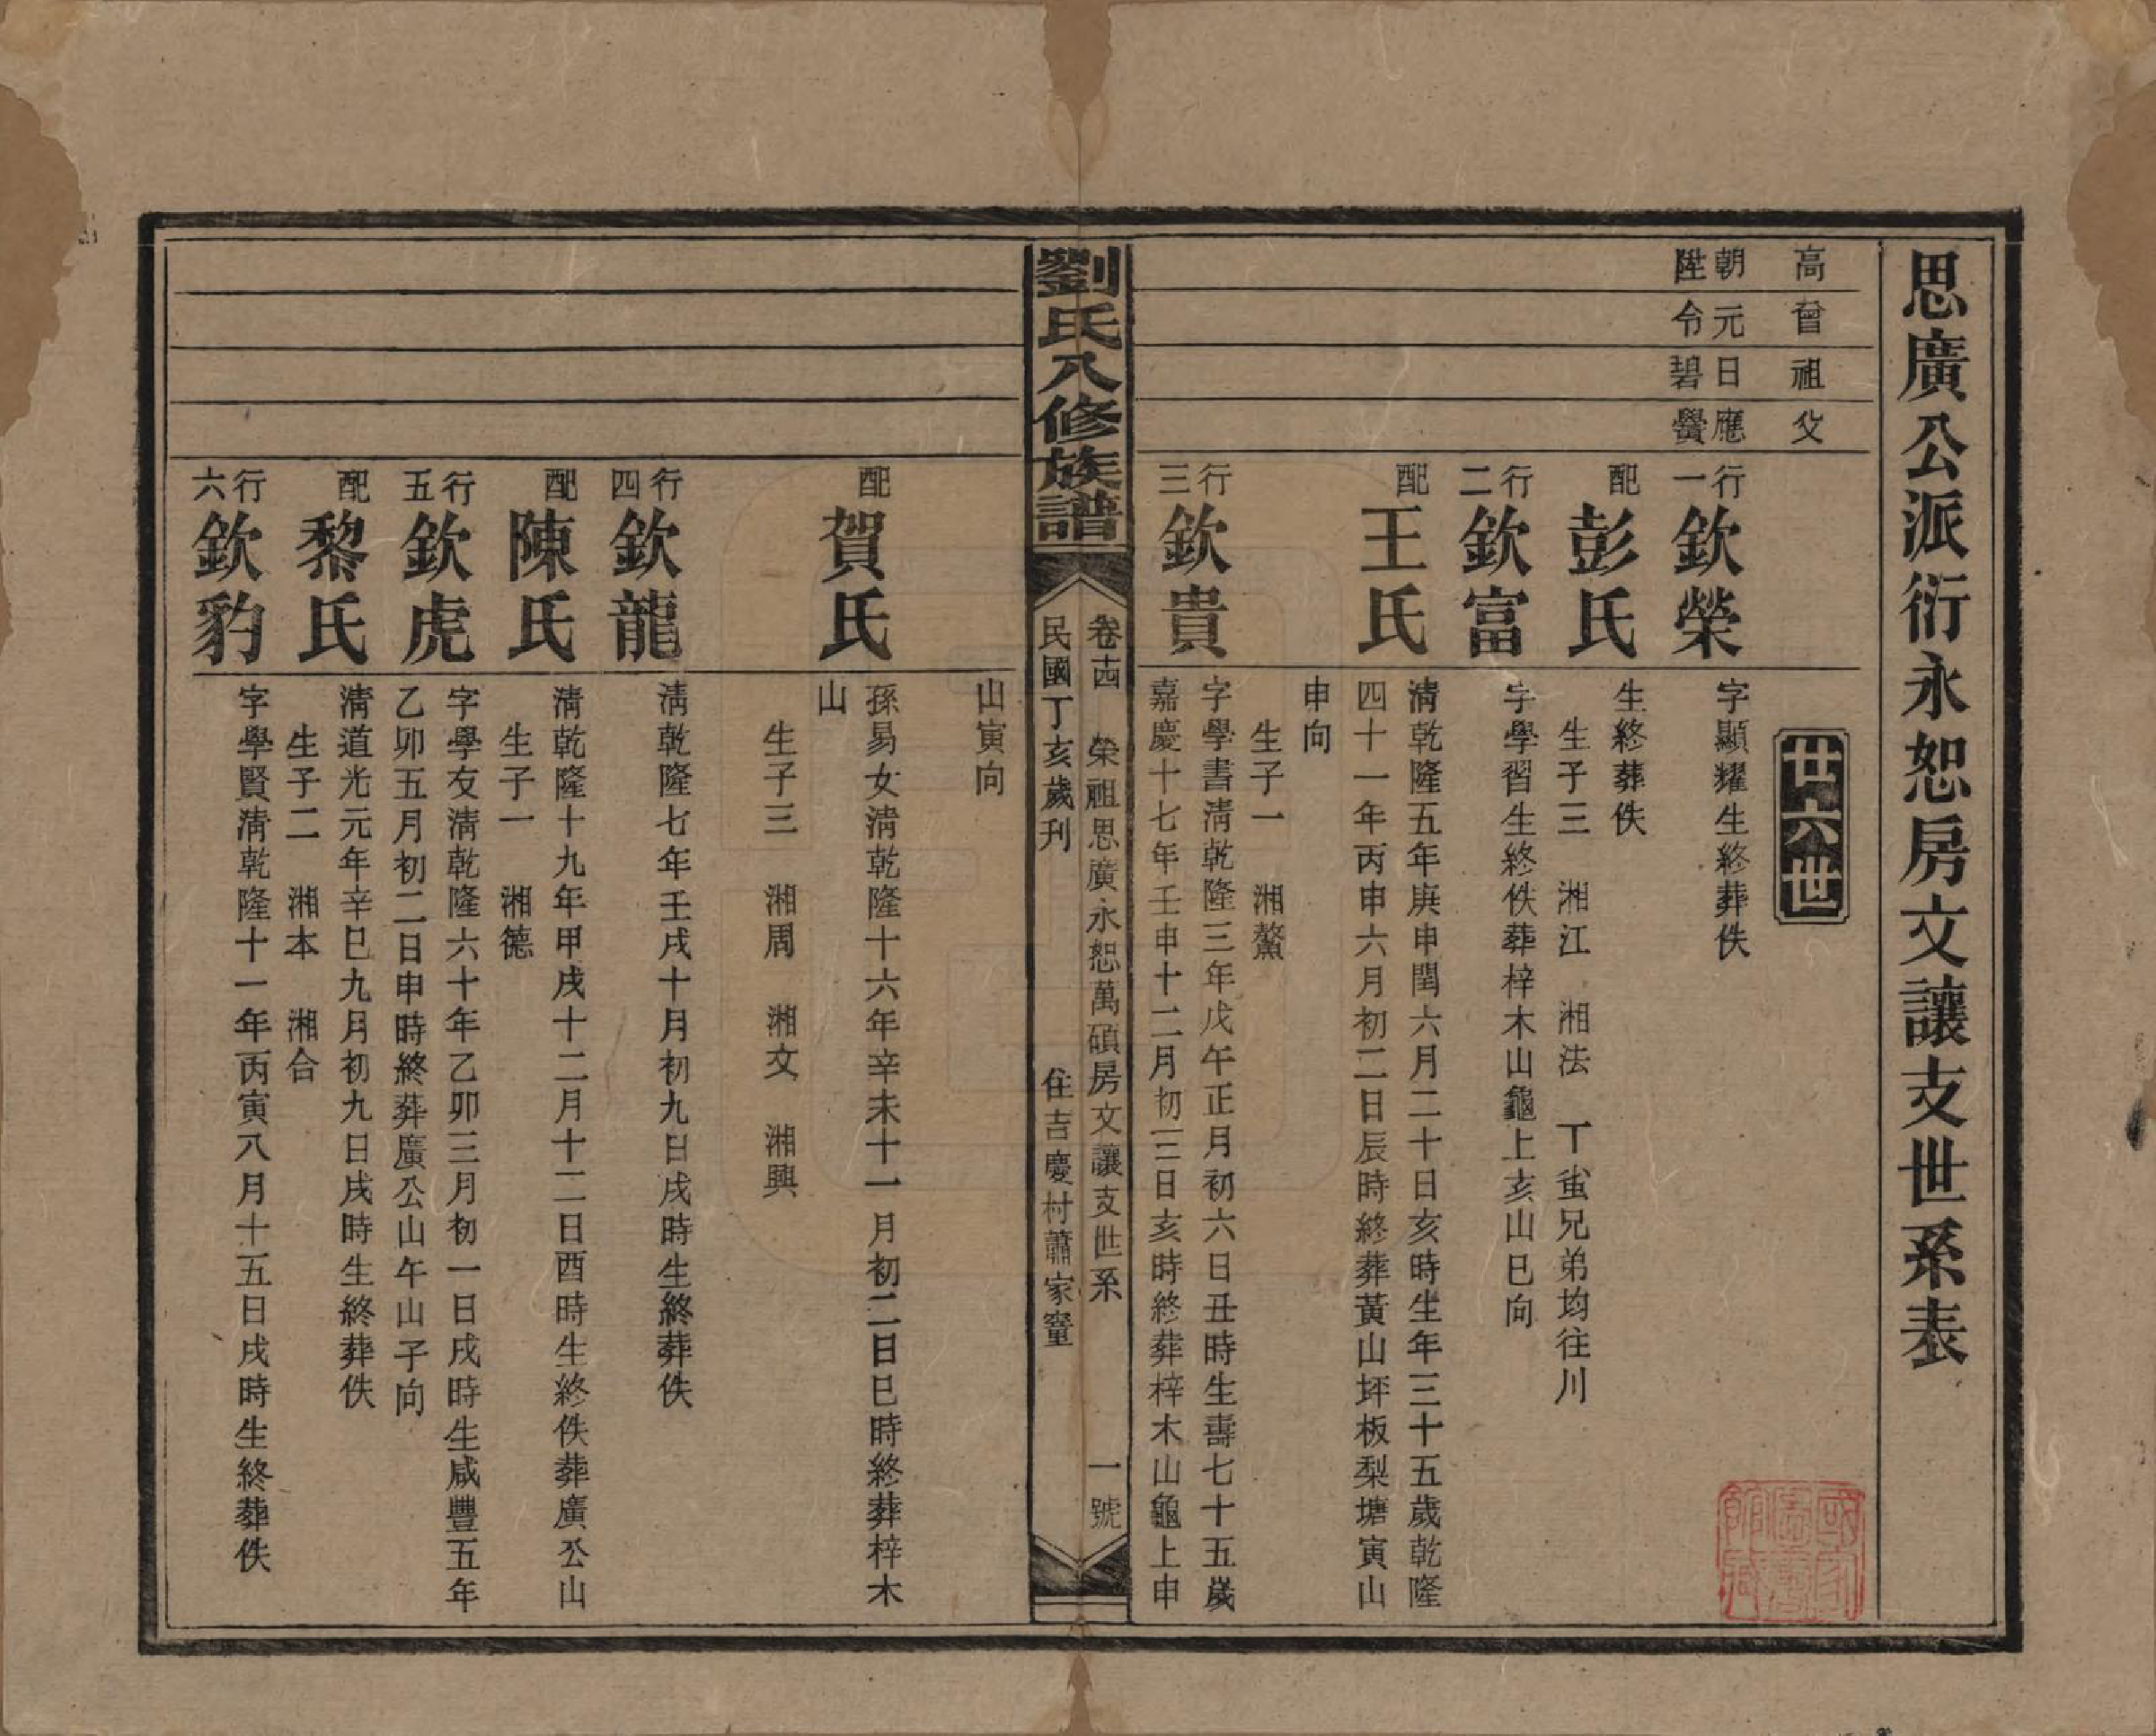 思廣公派衍永恕房文讓支世系表
高曾祖父
朝元日應
陞令碧鑾
廿六世
行一
欽榮
字顯耀生終葬佚
配
彭氏
生終葬佚
生子三 湘江 湘法 丁蚩兄弟均往川
行二
欽富
字學習生終佚葬梓木山龜上亥山巳向
配
王氏
清乾隆五年庚申閏六月二十日亥時生年三十五歲乾隆
四十一年丙申六月初二日辰時終葬黃山坪板梨塘寅山
申向
生子一 湘鰲
行三
欽貴
字學書清乾隆三年戊午正月初六日丑時生壽七十五歲
嘉慶十七年壬申十二月初三日亥時終葬梓木山龜上申
劉氏八修族譜
卷十四 榮祖思廣永恕萬碩房文讓支世系 一號
民國丁亥歲刋 住吉慶村蕭家窰
山寅向
配
賀氏
孫易女清乾隆十六年辛未十一月初二日巳時終葬梓木
山
生子三 湘周 湘文 湘興
行四
欽龍
清乾隆七年壬戌十月初九日戌時生終葬佚
配
陳氏
清乾隆十九年甲戌十二月十二日酉時生終佚葬廣公山
生子一 湘德
行五
欽虎
字學友清乾隆六十年乙卯三月初一日戌時生咸豐五年
乙卯五月初二日申時終葬廣公山午山子向
配
黎氏
清道光元年辛巳九月初九日戌時生終葬佚
生子二 湘本 湘合
行六
欽豹
字學賢清乾隆十一年丙寅八月十五日戌時生終葬佚